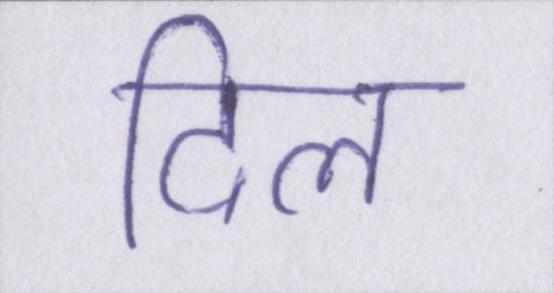 दिल